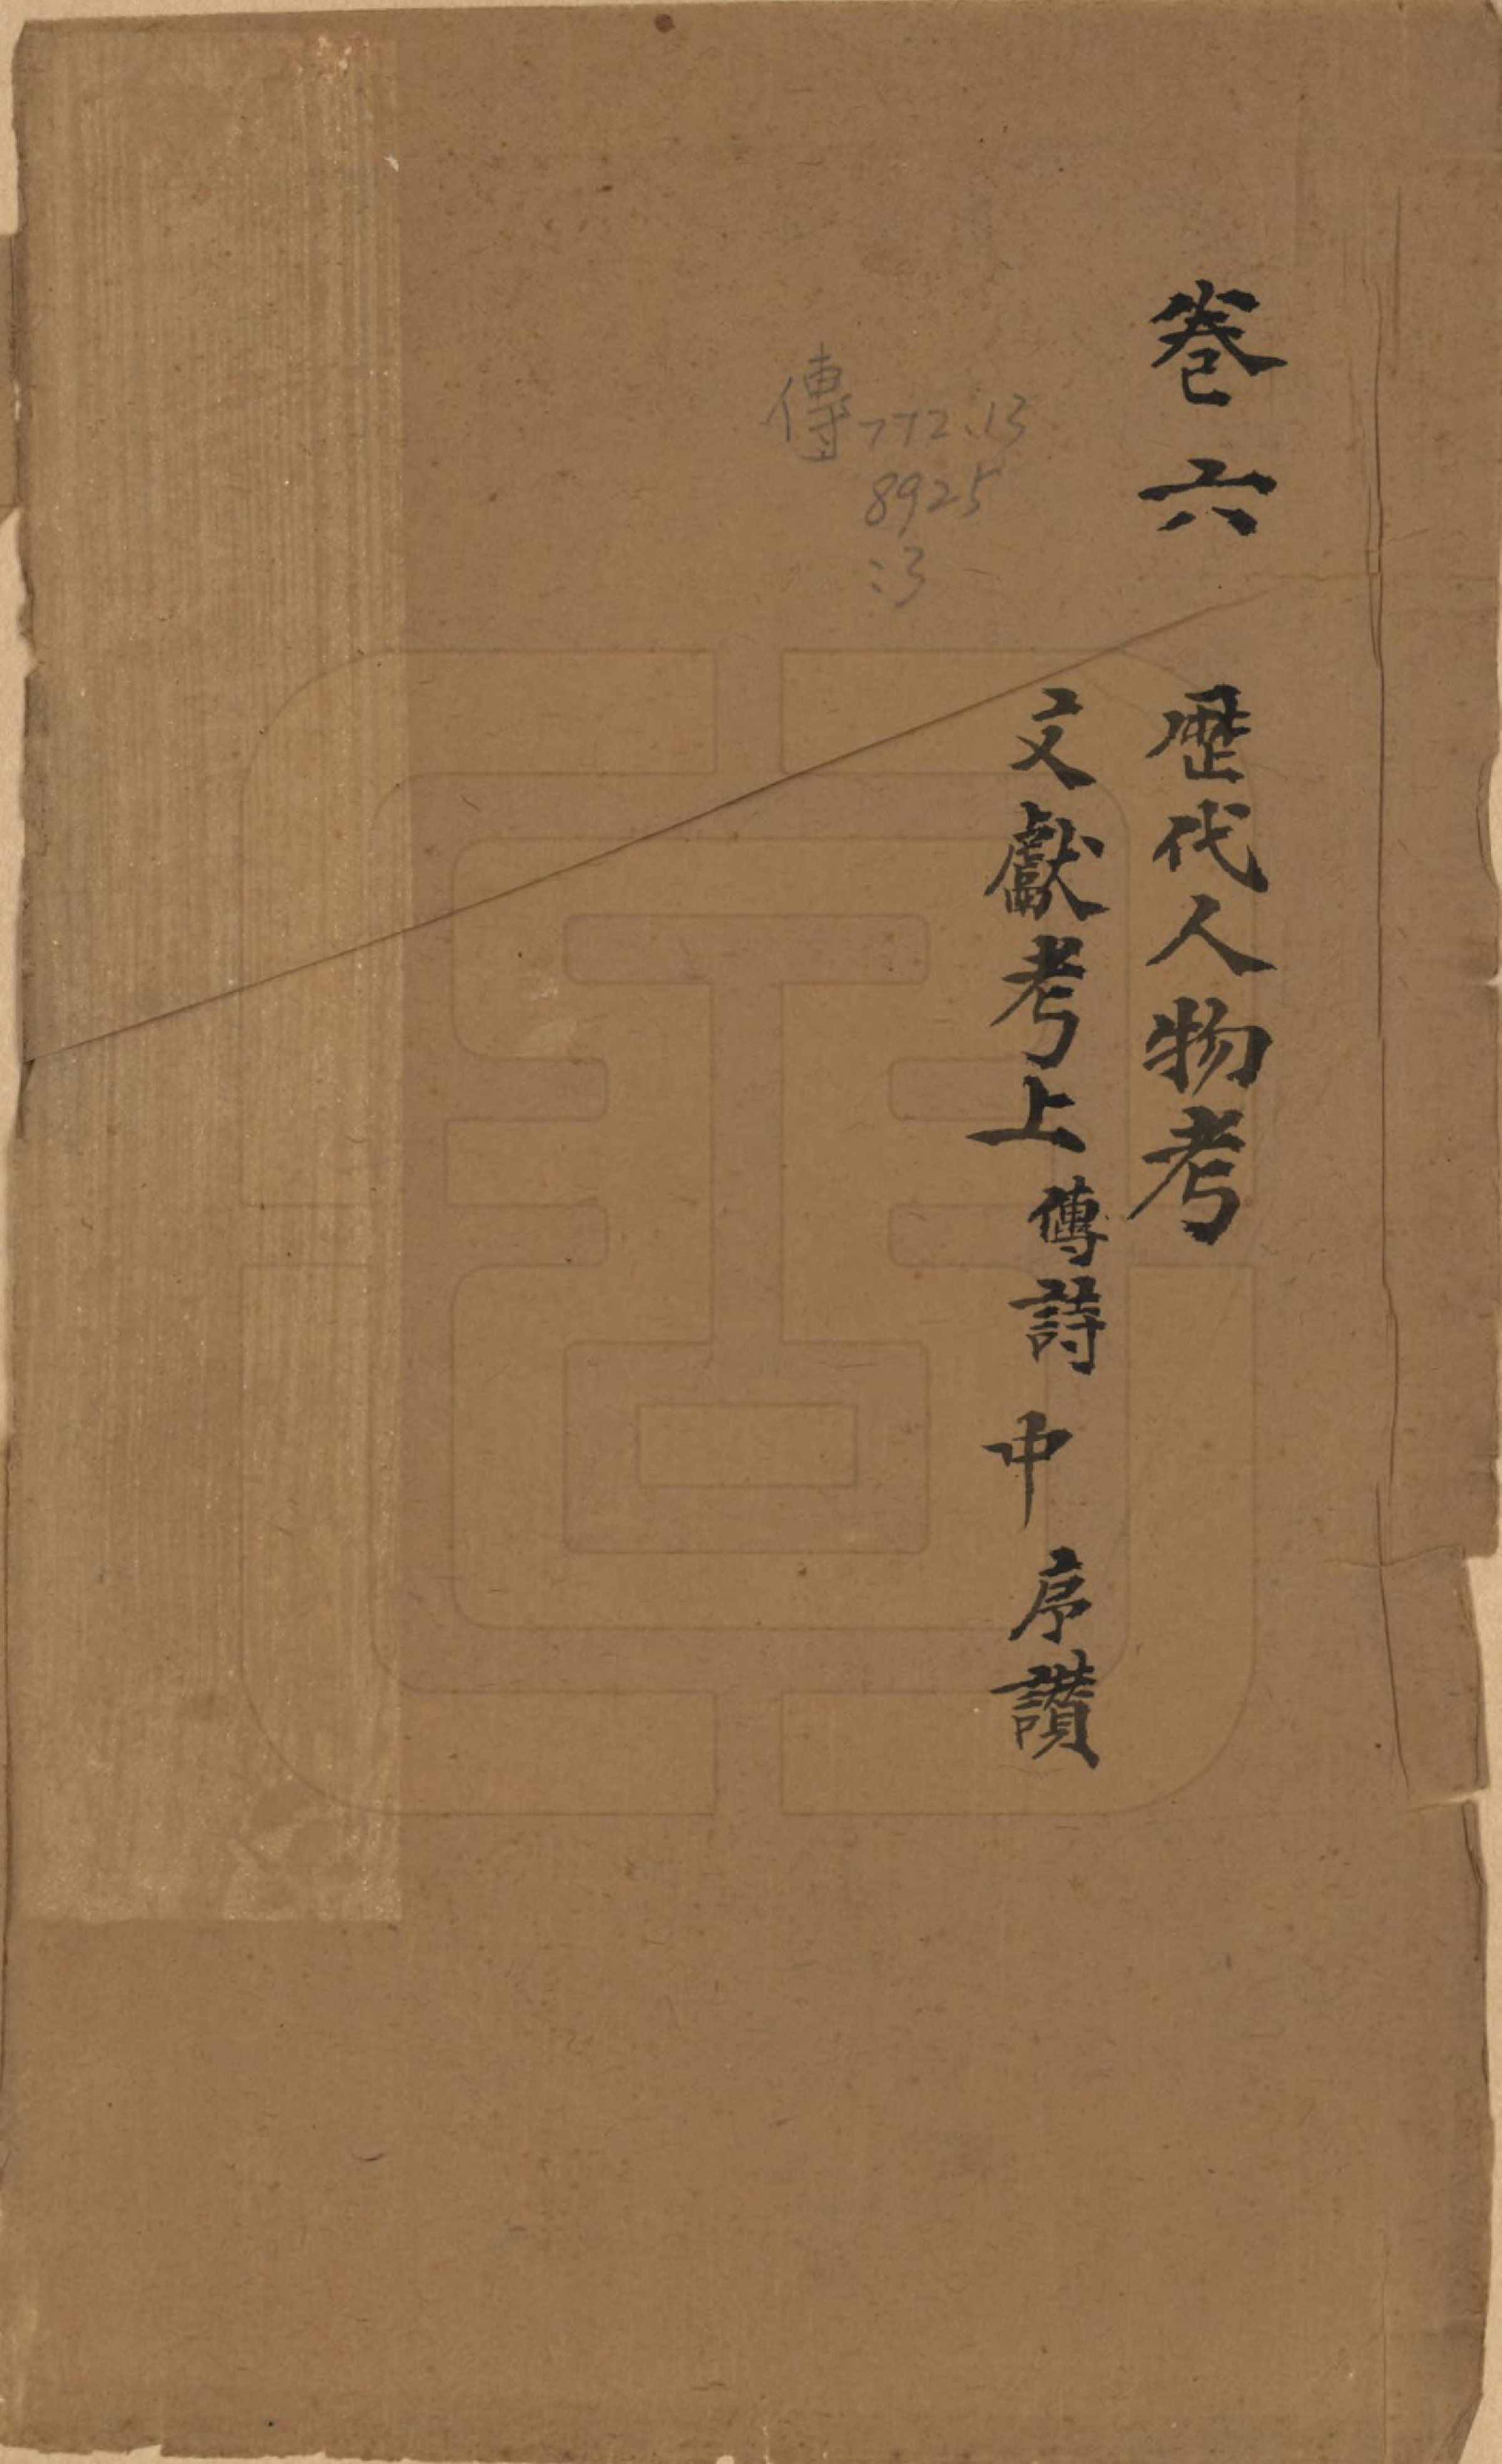 卷六 歷代人物考
文獻考上 傳詩 中 序讚
傳772.13
8925
:3